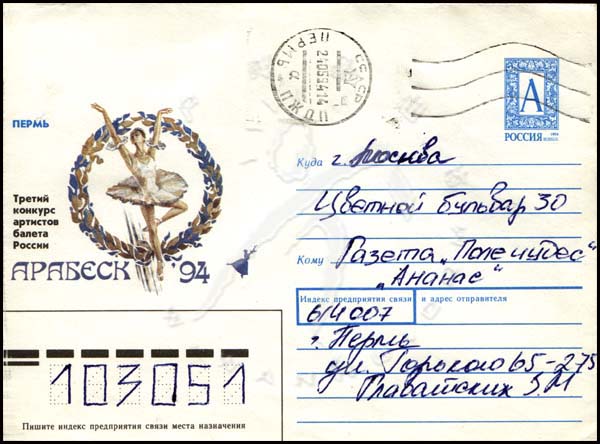 СССР
ПЕРМЬ
ПЖДП
ПЕРМЬ
Третий
конкурс
артистов
балета
России
АРАБЕСК '94
А
РОССИЯ
Куда г. Москва
Цветной бульвар 30
Кому Газета „Поле чудес"
„Ананас"
Индекс предприятия связи и адрес отправителя
614007
г. Пермь
ул. Горького 65-275
З.М
103051
Пишите индекс предприятия связи места назначения